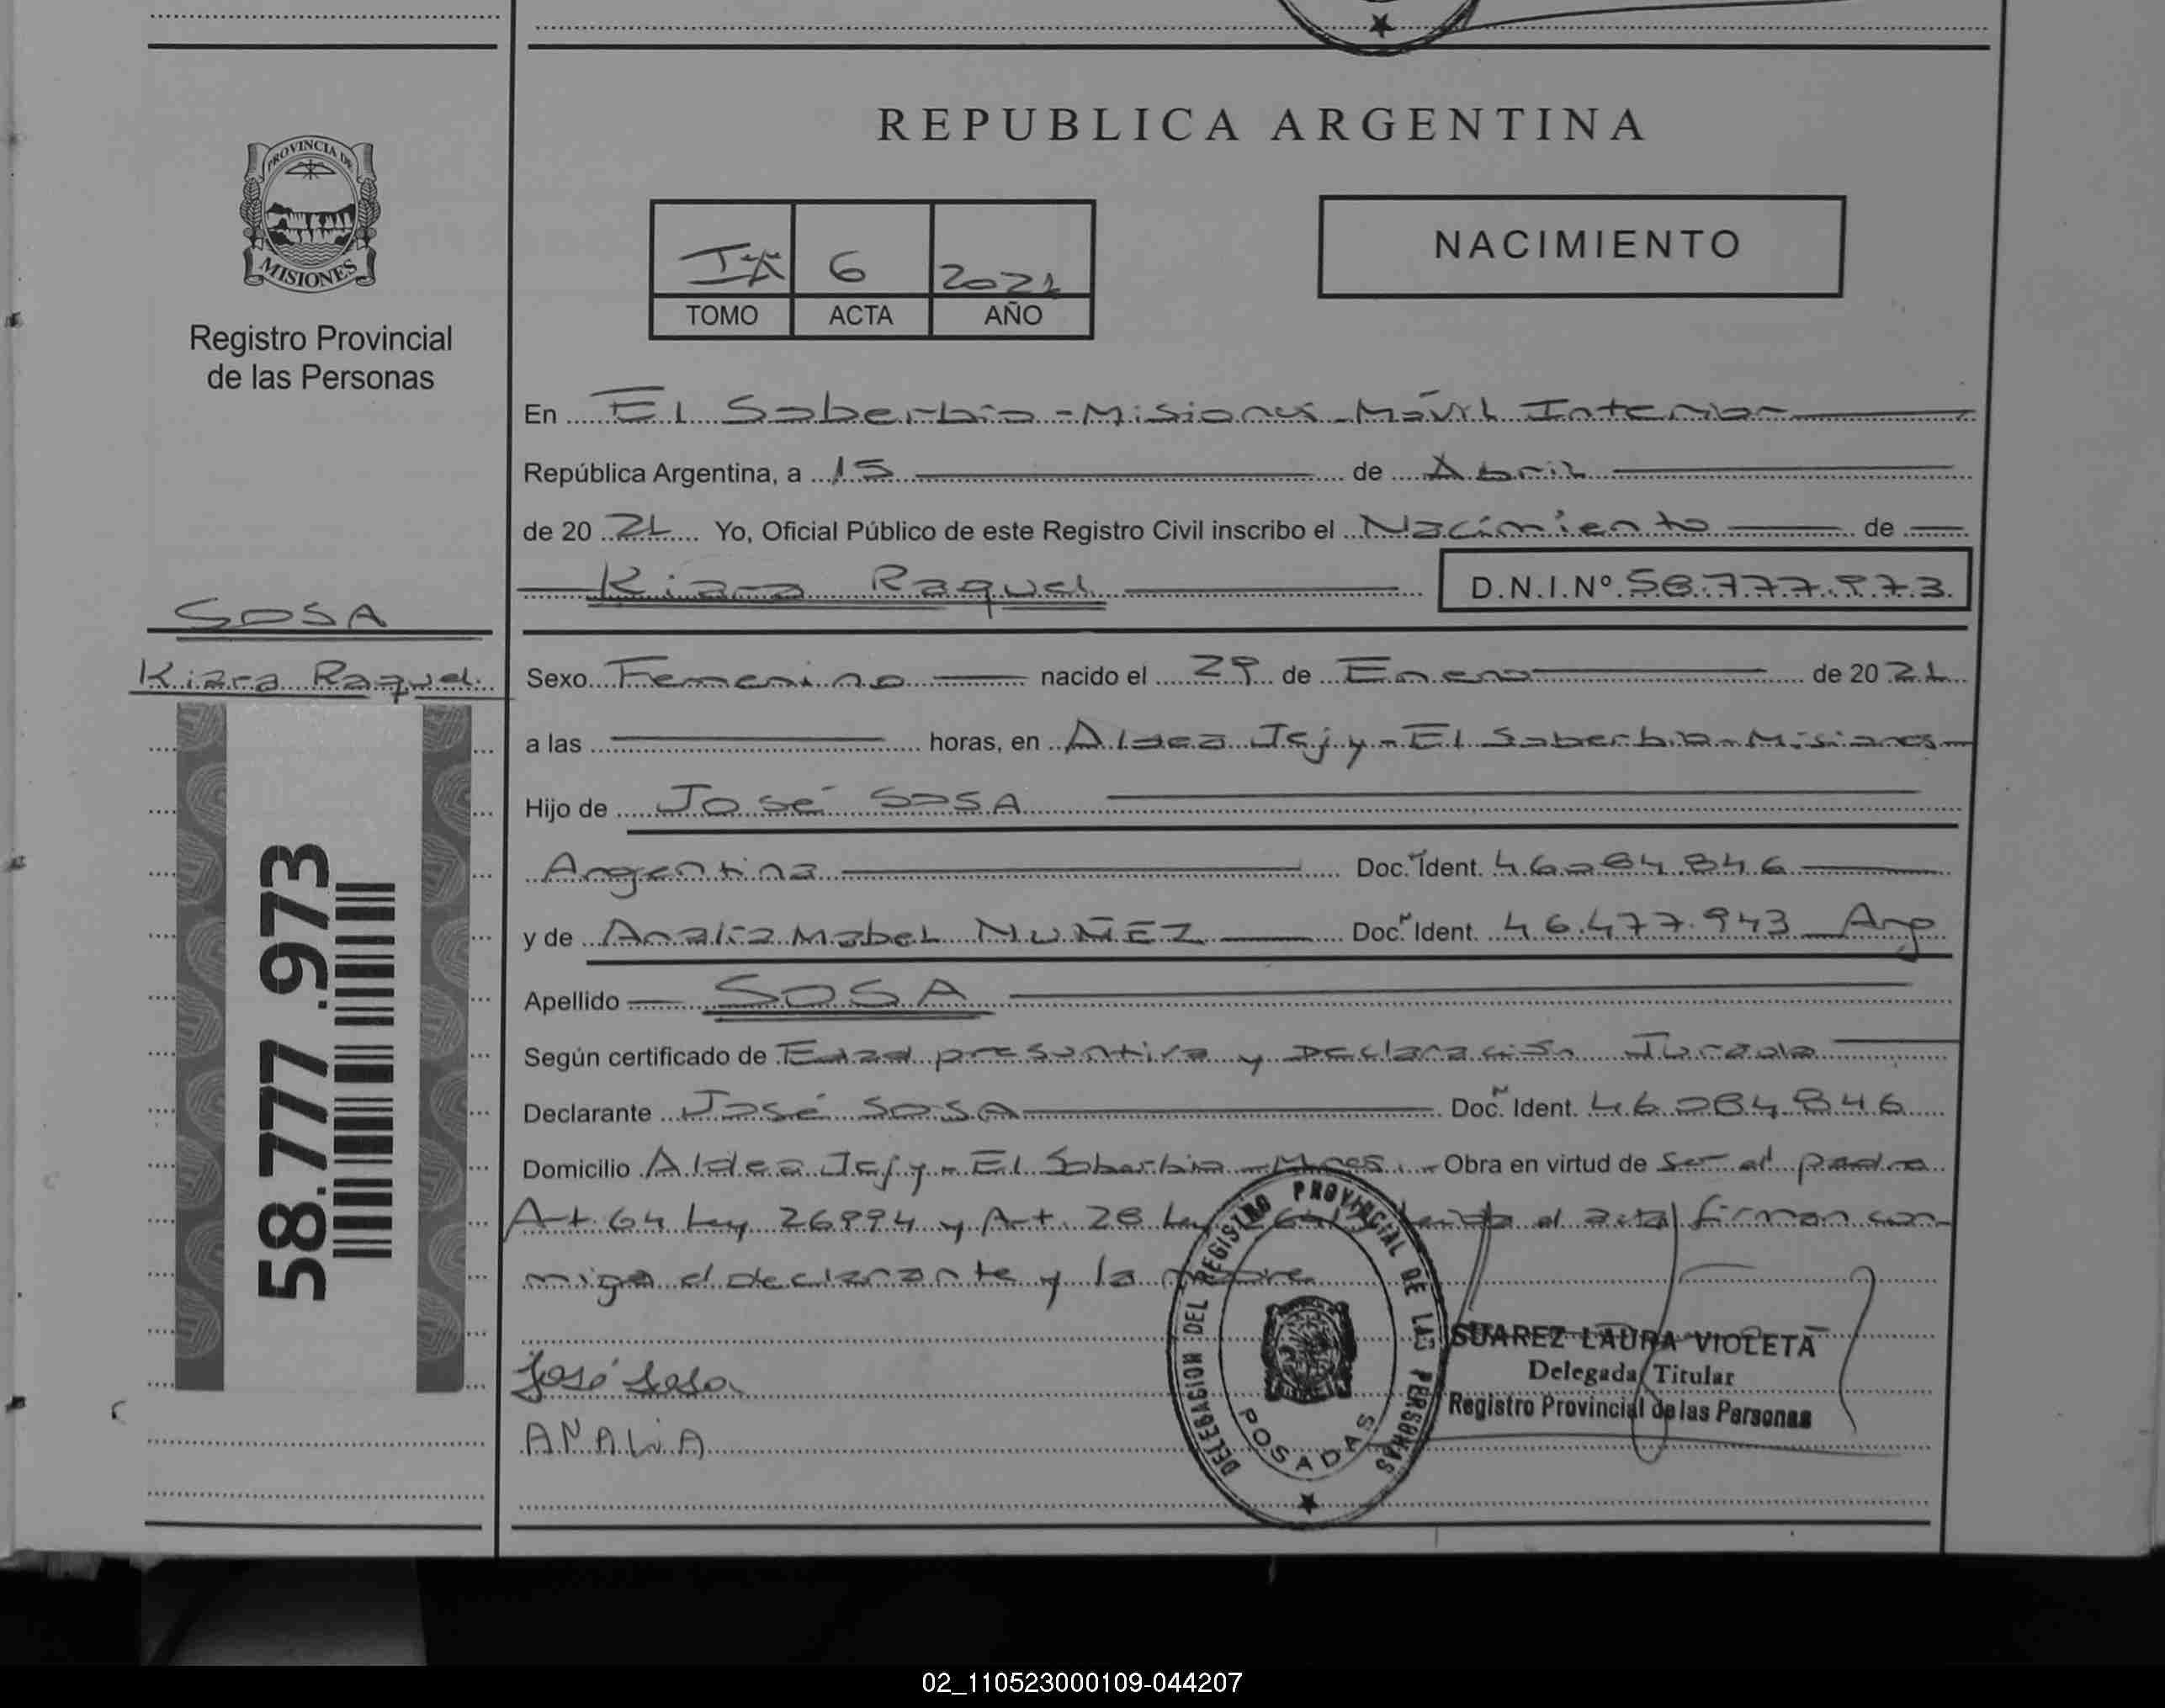 REPUBLICA ARGENTINA
PROVINCIA DE
MISIONES
Registro Provincial
de las Personas
6 2021
TOMO ACTA AÑO
NACIMIENTO
En El Soberbio - Misiones - Móvil Interior
República Argentina, a 15 de Abril
de 20 21 Yo, Oficial Público de este Registro Civil inscribo el Nacimiento de
Kiara Raquel D.N.I.Nº 58.777.973.
SOSA
Kiara Raquel
58.777.973
Sexo Femenino nacido el 29 de Enero de 20 21
a las horas, en Aldea Jejy - El Soberbio - Misiones
Hijo de José SOSA
Argentina Doc. Ident. 46084846
y de Analia Mabel NUÑEZ Doc. Ident. 46.477.943 Arg
Apellido SOSA
Según certificado de Edad presuntiva y Declaración Jurada
Declarante José SOSA Doc. Ident. 46084846
Domicilio Aldea Jejy - El Soberbio - Mnes. - Obra en virtud de ser el padre
Art. 64 Ley 26994 y Art. 28 Ley el acta firman con
migo el declarante y la madre
José Sosa
ANALiA
DELEGACION DEL REGISTRO PROVINCIAL DE LAS PERSONAS
POSADAS
SUAREZ LAURA VIOLETA
Delegada Titular
Registro Provincial de las Personas
02_110523000109-044207